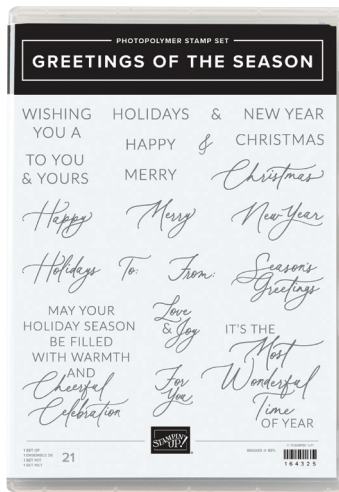 PHOTOPOLYMER STAMP SET
GREETINGS OF THE SEASON
WISHING
YOU A
HOLIDAYS & NEW YEAR
HAPPY & CHRISTMAS
TO YOU
& YOURS
MERRY Christmas
Happy Merry New Year
Holidays To: From: Season's
Greetings
MAY YOUR
HOLIDAY SEASON
BE FILLED
WITH WARMTH
AND
Cheerful
Celebration
Love
& Joy
For
You
IT'S THE
Most
Wonderful
Time
OF YEAR
STAMPIN' UP!
1 SET OF
21
164325